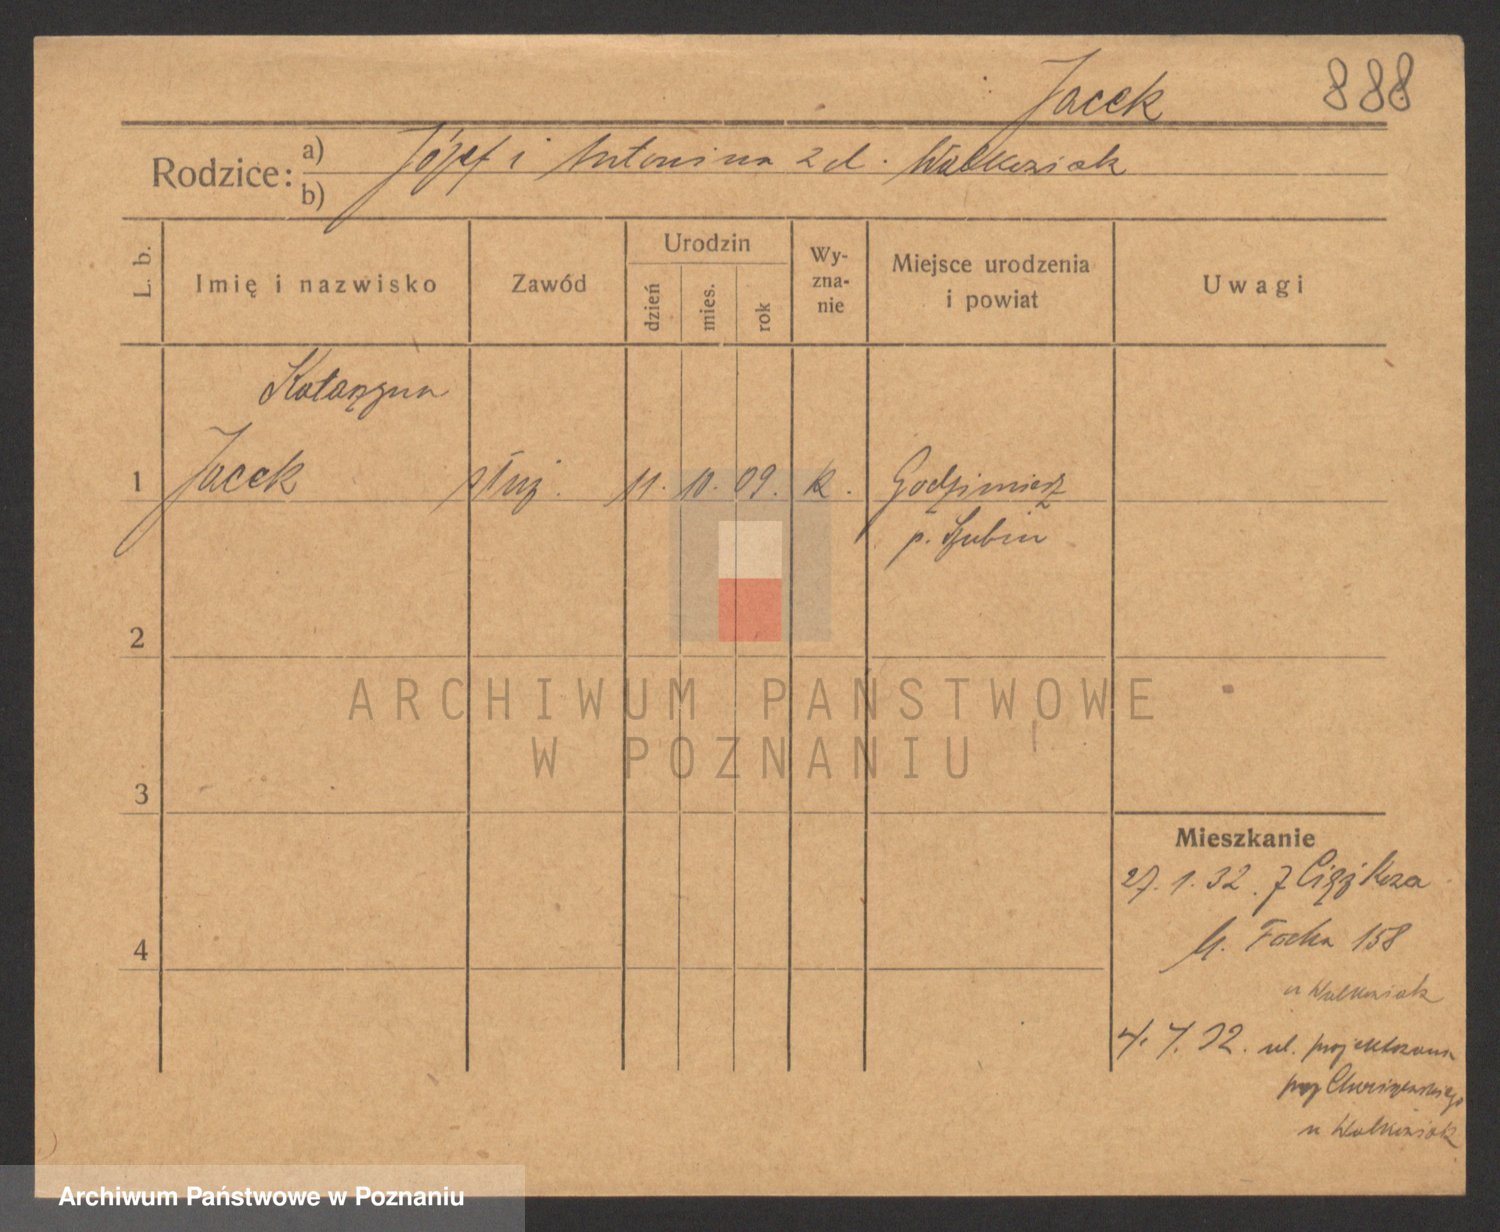 Jacek 888
Rodzice: a) Józef i Antonina z d. Walkowiak
b)
L. b. Imię i nazwisko Zawód Urodzin dzień mies. rok Wyznanie Miejsce urodzenia i powiat Uwagi
Katarzyna
1 Jacek służ. 11. 10. 09. k. Godzimierz
p. Szubin
2
ARCHIWUM PAŃSTWOWE
W POZNANIU
3
Mieszkanie
27. 1. 32. z
4
Focha 158
u Walkowiak
4. 7. 32. ul. projektowana
u Walkowiak
Archiwum Państwowe w Poznaniu